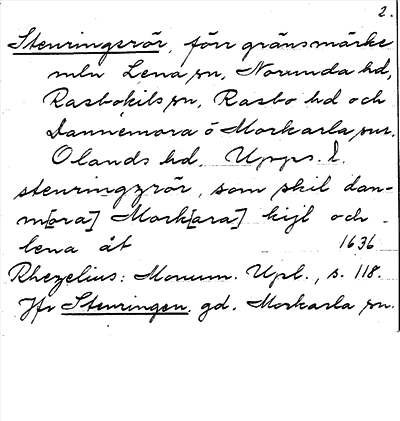 2.
Stenringsrör, förr gränsmärke
mln Lena sn, Norunda hd,
Rasbokils sn, Rasbo hd och
Dannemora o Morkarla snr,
Olands hd, Upps. l.
stenringzrör, som skil dan-
m[ora] Mork[ara] kijl och
lena åt 1636
Rhezelius: Monum. Upl., s. 118.
Jfr Stenringen, gd, Morkarla sn.